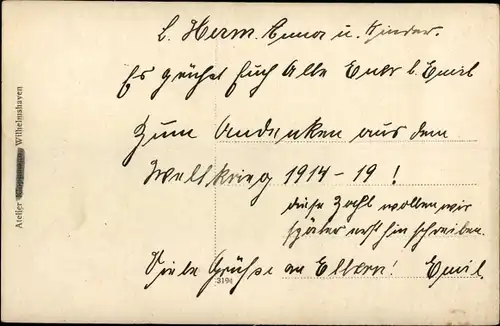 L. Herm. Anna u. Kinder.
Es grüßt Euch Alle Euer l. Emil
Zum Andenken aus dem
Weltkrieg 1914 - 19 !
diese Zahl wollen wir
später erst hin schreiben.
Viele Grüße an Eltern! Emil.
3191
Atelier Wilhelmshaven